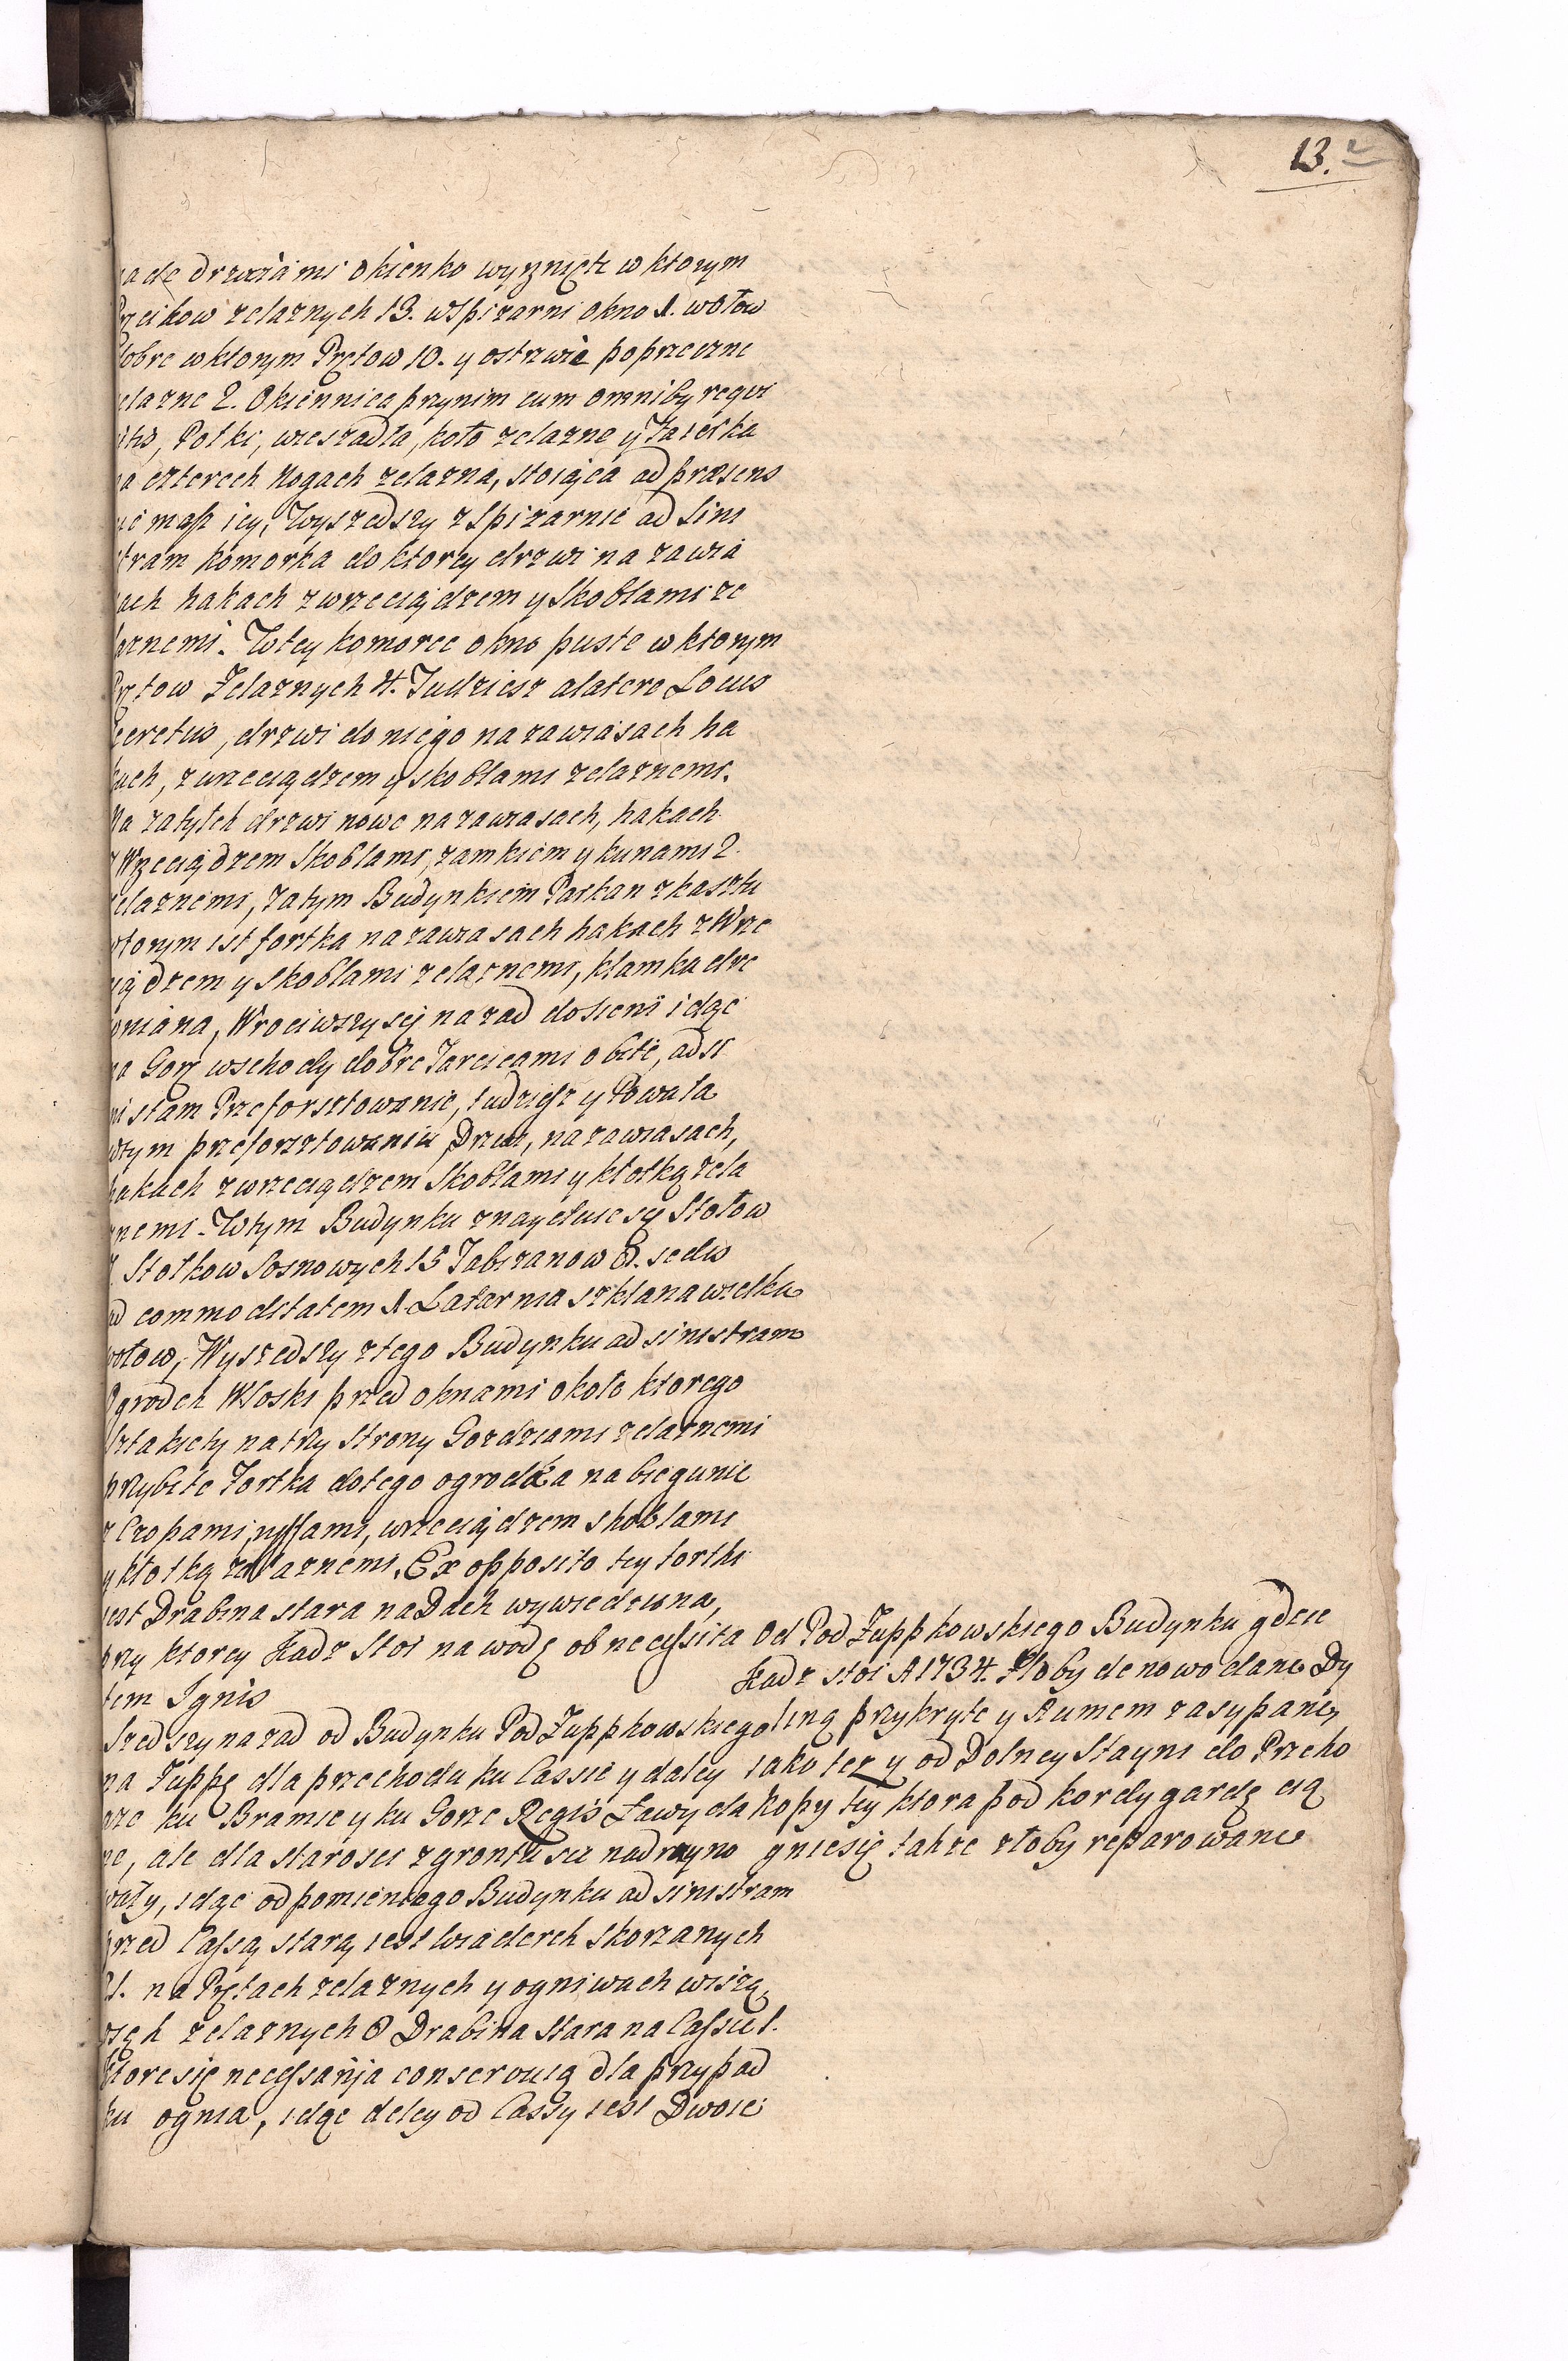 13.
nade drzwiami okienko wyrznięte w ktorym
Pręcikow zelaznych 13. w Spizarni okno 1. w ołow
dobre w ktorym Prętow 10. y ostrwie poprzeczne
zelazne 2. Okiennica przynim cum omniby requi
sitis, Połki, wieszadła, koło zelazne y
na czterech Nogach zelazna, stoiąca ad præsens
niemasz iey, Wyszedszy z Spizarnie ad Sini
stram komorka do ktorey drzwi na zawia
sach hakach z wrzeciądzem y Skoblami ze
laznemi. W tey komorce okno puste w ktorym
Prętow Zelaznych 4. Tudziesz a latere Locus
Secretus, drzwi do niego na zawiasach ha
kach, z wrzeciądzem y skoblami zelaznemi.
Na zatyłch drzwi nowe na zawiasach, hakach
z Wrzeciądzem Skoblami, zamkiem y kunami 2.
zelaznemi, za tym Budynkiem Parkan z kasztu
wtorym ist fortka na zawiasach hakach z Wrze
ciądzem y Skoblami zelaznemi, klamka dre
wniana, Wrociwszy się nazad do Sieni idąc
na Gorę wschody dobre Tarcicami obite, ad si
nistam Przeforsztowanie, tudziesz y Powała
w tym przeforsztowaniu Drzwi, na zawiasach,
hakach z wrzeciądzem Skoblami y kłotką zela
znemi. W tym Budynku znayduie się Stołow
7. Stołkow Sosnowych 15 Tabszanow 8. sedis
ad commoditatem 1. Latarnia szklana wielka
w ołow, Wyszedszy z tego Budynku ad sinistram
Ogrodek Włoski przed oknami około ktorego
Sztakiety na trzy Strony Gozdziami zelaznemi
przybite Fortka do tego ogrodka na biegunie
z Czopami, ryffami, wrzeciądzem skoblami
y kłotką zelaznemi, Ex opposito tey fortki
iest Drabina stara na Dach wywiedziona,
przy ktorey Kadz Stoi na wodę ob necessita
tem Ignis
Szedszy nazad od Budynku Pod Zuppkowskiego
na Zuppę dla przechodu ku Cassie y daley
oze ku Bramie y ku Gorze Regis Ławy da
ne, ale dla starosci z gruntu sie nadrayno
wały, idąc od pomienego Budynku ad sinistram
przed Cassą starą iest wiaderek Skorzanych
21. na Prętach zelaznych y ogniwach wiszą,
osęk zelaznych 8 Drabina Stara na Cassie 1.
ktore się necessaria conserwuią dla przypad
ku ognia, idąc daley od Cassy iest Dwoie
Od Pod Zuppkowskiego Budynku gdzie
Kadz stoi A 1734. Złoby de nowo dane Dy
liną przykryte y Rumem zasypane,
iako tez y od Dolney Stayni do Przeko
kopy tey ktora pod kordygardę cią
gnie się takze złoby reparowane